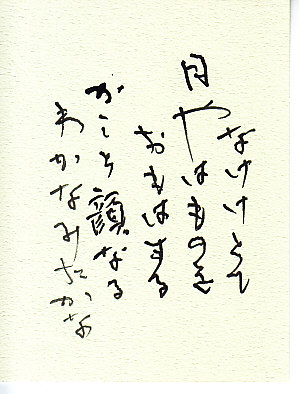 なけけとて
月やはものを
おもはする
かこち顔なる
わかなみたかな